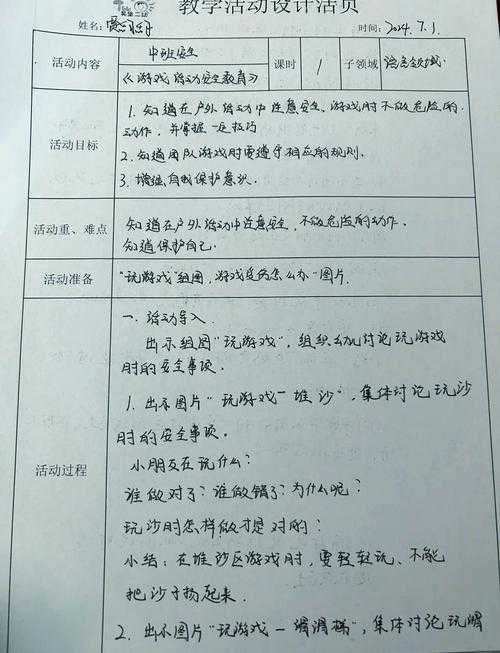 教学活动设计活页
姓名: 时间: 2024.7.1
活动内容 中班安全 课时 1 子领域 语言领域
《游戏活动安全教育》
活动目标 1. 知道在户外活动中注意安全、游戏时不做危险的
动作,并掌握一定技巧
2. 知道团队游戏时要遵守相应的规则.
3. 增强自我保护意识.
活动重、难点 知道在户外活动中注意安全,不做危险的动作.
知道保护自己.
活动准备 "玩游戏"组图,游戏受伤怎么办"图片.
活动过程 一. 活动导入.
出示组图"玩游戏",组织幼儿讨论玩游戏
时的安全事项.
1. 出示图片"玩游戏-堆沙",集体讨论玩沙
时的安全事项。
小朋友在玩什么?
谁做对了?谁做错了?为什么呢?
玩沙时怎样做才是对的?
小结:在堆沙区游戏时,要轻轻玩、不能
把沙子扬起来.
2. 出示图片"玩游戏-滑滑梯",集体讨论玩滑